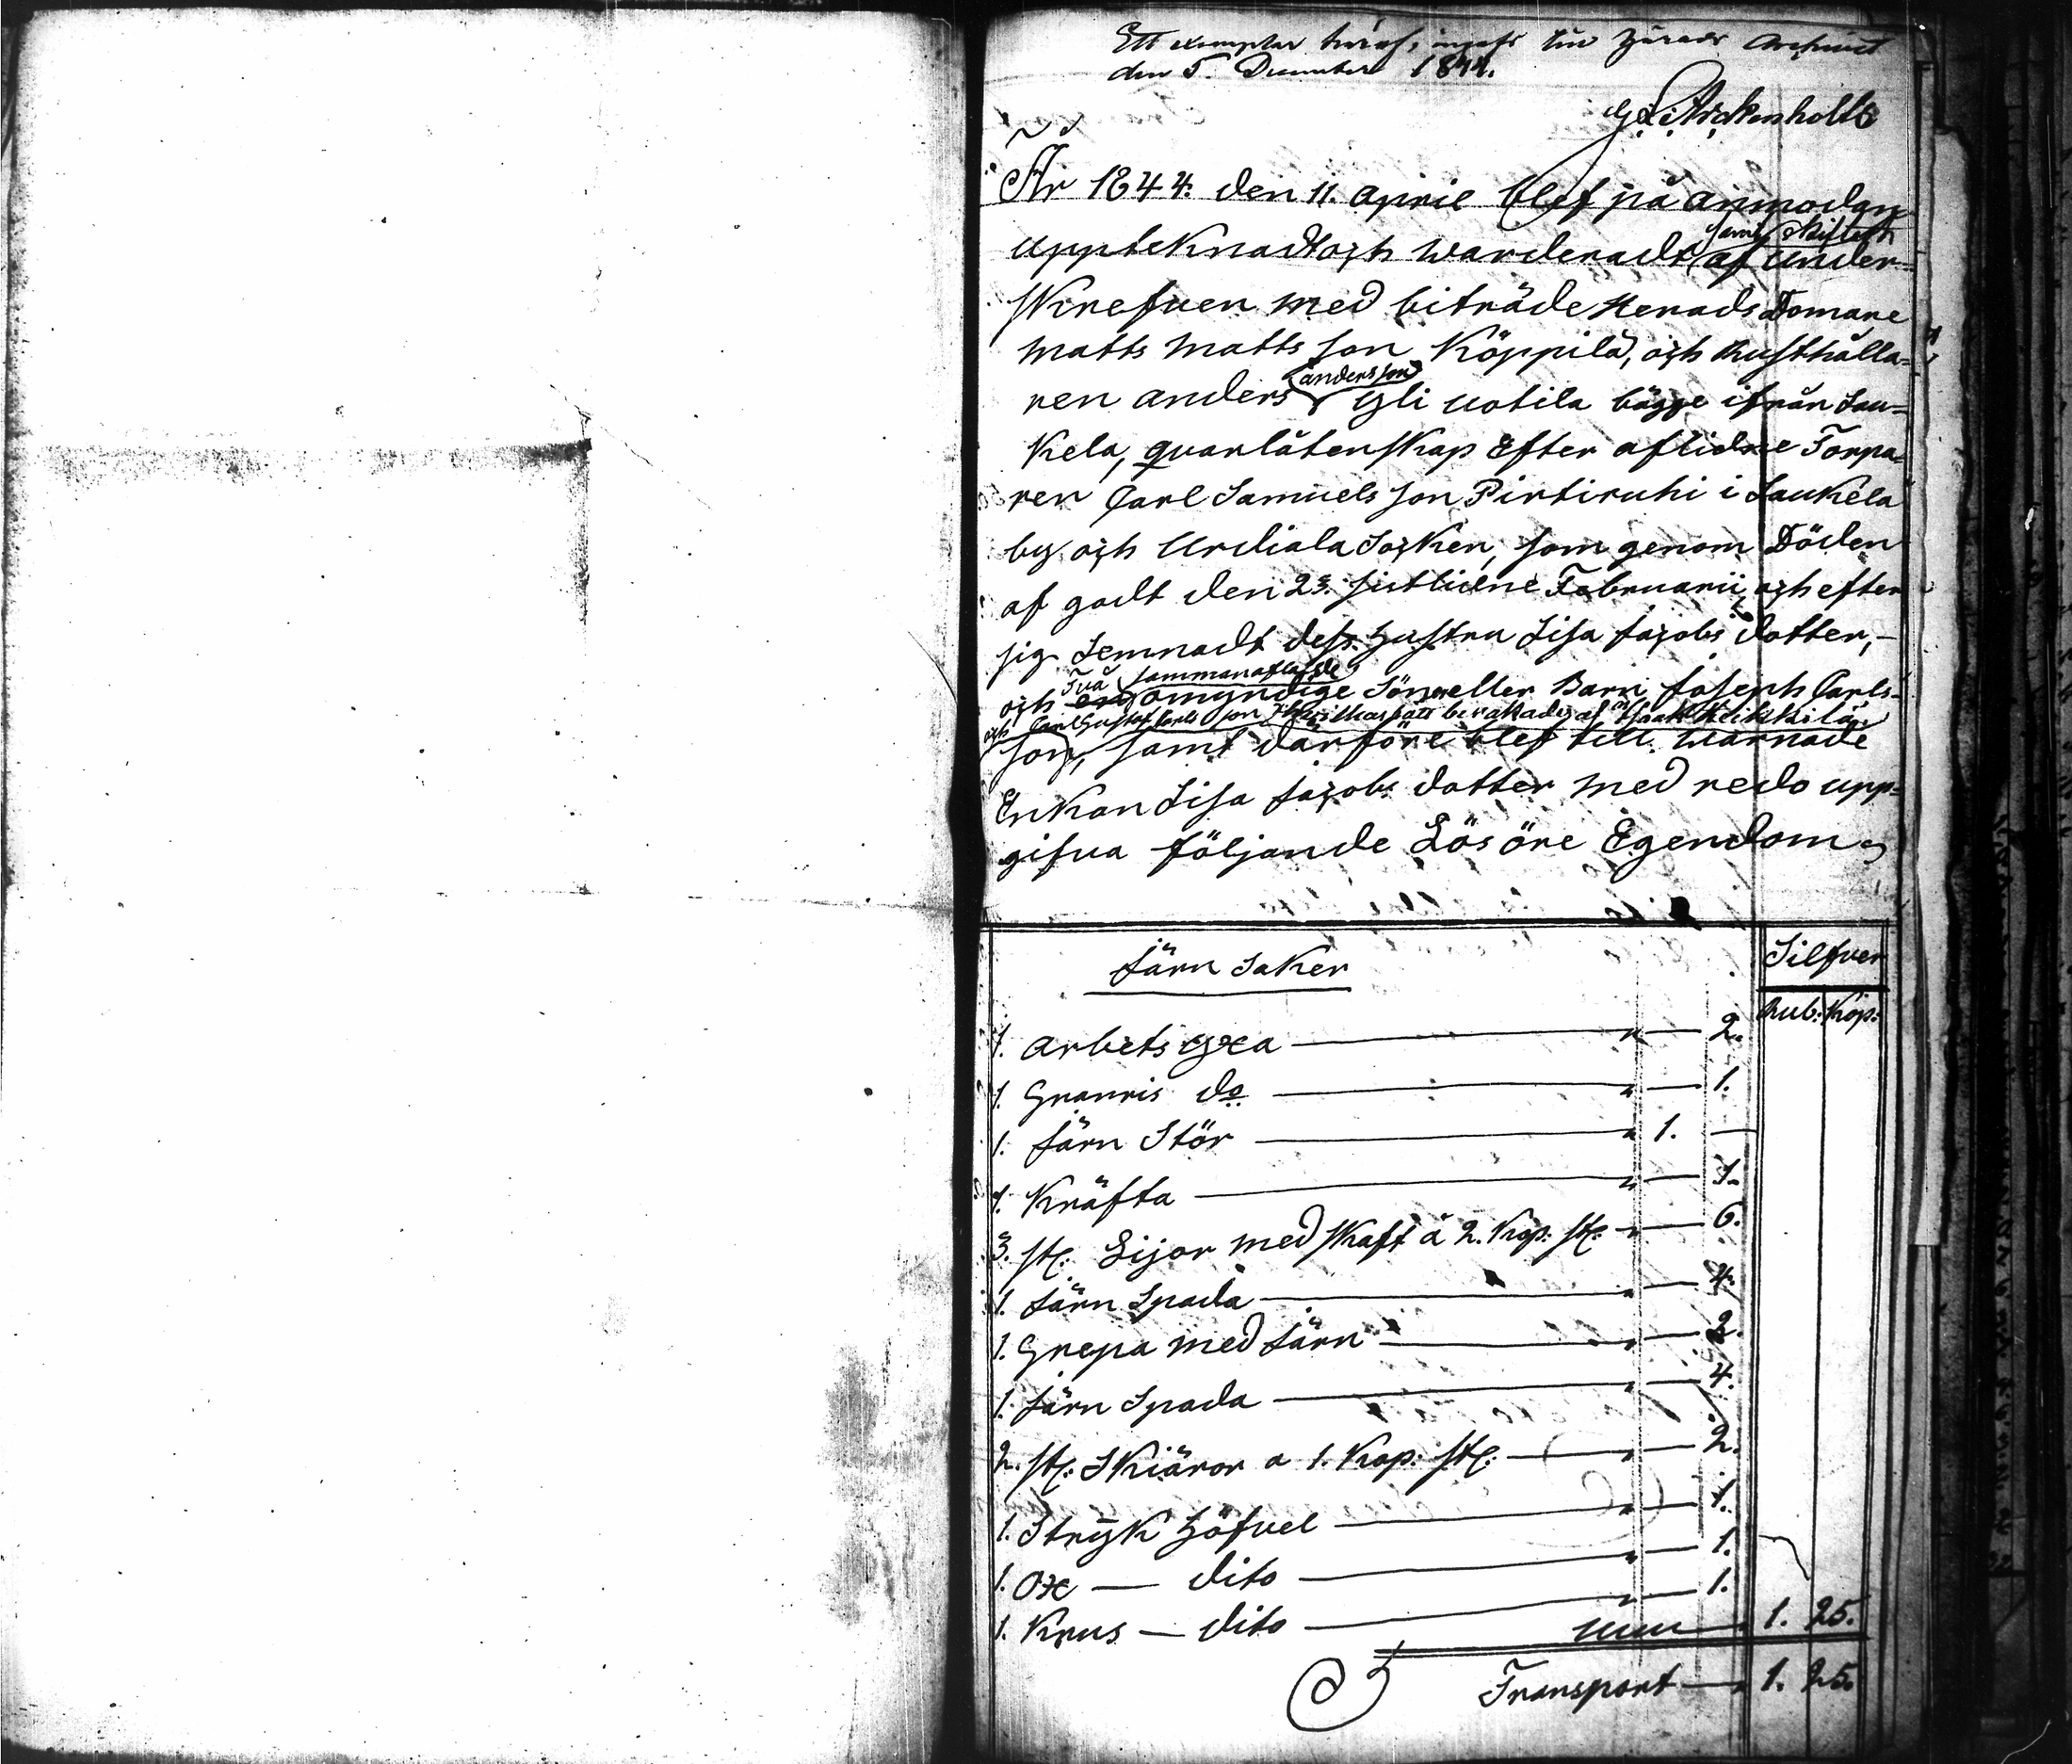 Ett exemplar häraf, ingafs till Härads Archivet
den 5. December 1844.
År 1844: den 11. april blef på anmodan
upptecknadt och warderadt af under-
samt skiftadt
skrefven med biträde Herads Domare
Matts Matts son Köppilä, och Rusthålla-
ren anders yli uotila bägge ifrån Lau-
andersson
kela, qvarlåtenskap Efter aflidne Torpa-
ren Carl Samuels son Pirtiruhi i Laukela
by och Urdiala Socken, som genom Döden
af gadt den 23. sistlidne Februarii, och efter
sig Lemnadt dess Hustru Lisa Jacobs dotter,-
två sammanaflade
och omyndige Söner eller Barn Joseph Carls-
och Carl Gustaf Carls son af Isaak Heikkilä
son, samt därföre blef till warnade
Enkan Lisa Jacobs dotter med redo upp-
gifva följande Lösöre Egendom
Järn Saker
Silfver
Rub: Kop:
1. arbets yxa — " — 2.
1. Granris do — " — 1.
1. Järn Stör — " 1. —
1. Kräfta — " — 5.
3. st. Lijor med skaft à 2. Kop: st. " — 6.
1. Järn Spada — " — 4.
1. Grepa med Järn — " — 2.
1. Järn Spada — " — 4.
2. st. Skiäror a 1. Kop: st. — " — 2.
1. Stryk Höfvel — " — 1.
1. Oxe — dito — " — 1.
1. Krus — dito — " — 1.
1. 25.
Transport — 1. 25.